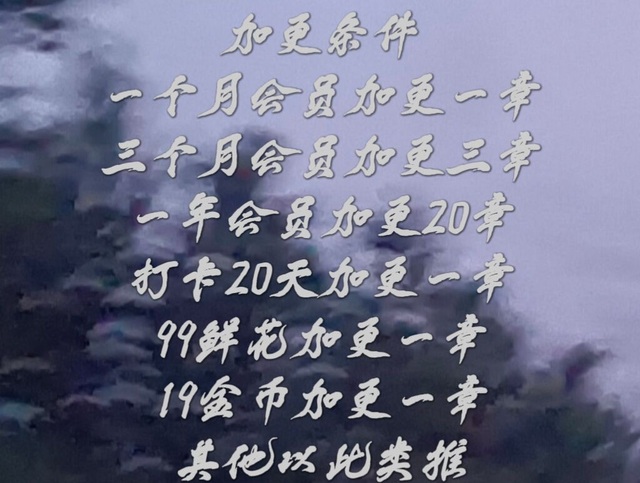 加更条件
一个月会员加更一章
三个月会员加更三章
一年会员加更20章
打卡20天加更一章
99鲜花加更一章
19金币加更一章
其他以此类推